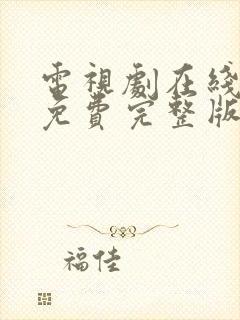 電視劇在綫
免費完整版
福佳